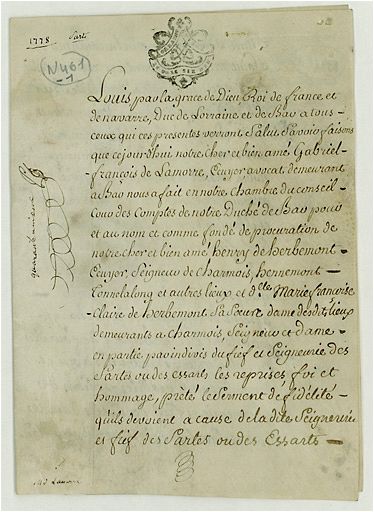 1778
N461
1
Louis par la grace de Dieu Roi de france et
de navarre, Duc de Lorraine et de Bar a tous
ceux qui ces presentes verront Salut Savoir faisons
que cejourd'hui notre cher et bien amé Gabriel-
françois de Lamorre, Ecuyer avocat, demeurant
a Bar nous a fait en notre chambre du conseil -
Cour des Comptes de notre Duché de Bar pour
et au nom et comme fondé de procuration de
notre cher et bien amé henry de herbemont -
Ecuyer, Seigneur de Charmois, hennemont -
et autres lieux et dlle Marie françoise
-Claire de herbemont Sa Sœur, dame desdits lieux
demeurants a Charmois, Seigneur et dame -
en partie par indivis du fief et Seigneurie des
Sartes ou des essarts les reprises, foi et
hommage, prêté le Serment de fidélité -
qu'ils devoient a cause de la dite Seigneurie
et fief des Sartes ou des Essarts -